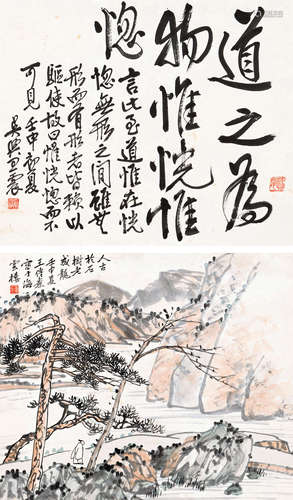 道之為
物惟恍惟
惚
言此至道惟在恍
惚無形之間無
形而有形者皆以
驅使故曰惟恍惚而不
可見 壬申初夏
吳興王震
人古
於石
樹老
成龍
壬申夏
王
寫于海
雲樓